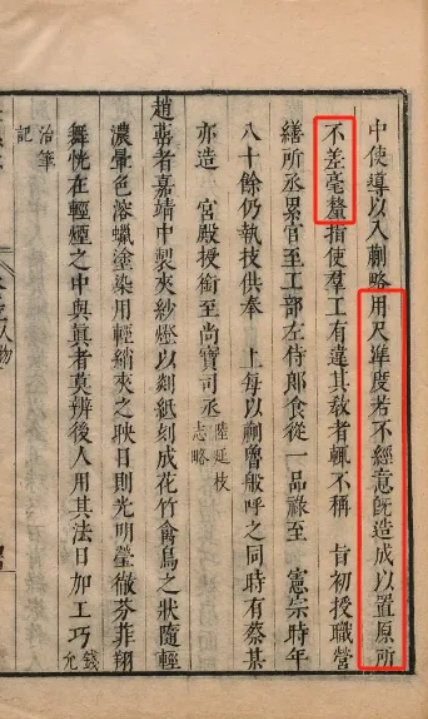 中使導以入蒯略用尺準度若不經意旣造成以置原所
不差毫釐指使羣工有違其敎者輒不稱 旨初授職營
繕所丞累官至工部左侍郎食從一品祿至 憲宗時年
八十餘仍執技供奉 上每以蒯魯般呼之同時有蔡某
亦造 宮殿授銜至尚寶司丞 陸延枝
志略
趙蕚者嘉靖中製夾紗燈以剡紙刻成花竹禽鳥之狀隨輕
濃暈色溶蠟塗染用輕綃夾之映日則光明瑩徹芬菲翔
舞恍在輕煙之中與眞者莫辨後人用其法日加工巧 錢
允
治筆
記
人物